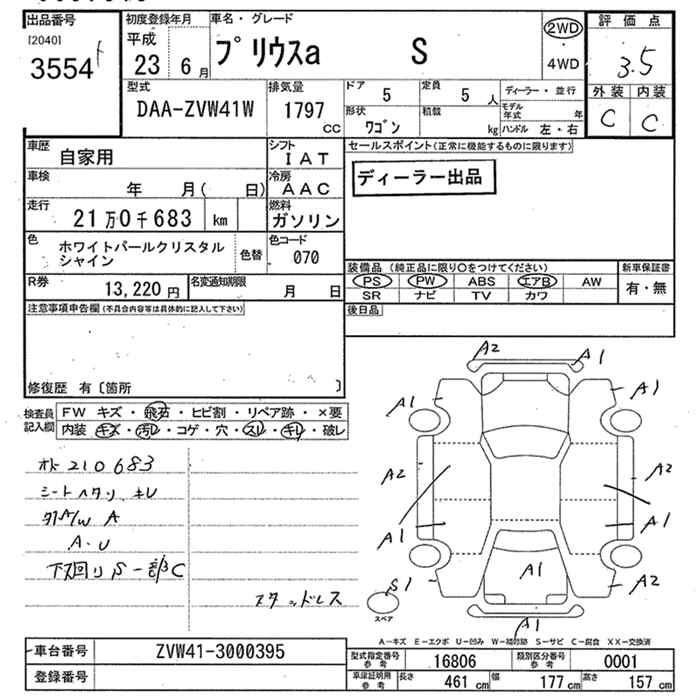 出品番号 初度登録年月 車名・グレード 評価点
[2040] 平成 2WD
3554 23 6月 プリウスa S ・ 3.5
4WD
型式 排気量 ドア 定員 外装 内装
DAA-ZVW41W 1797 CC 5 5人 ディーラー・並行 C C
形状 積載 モデル年式 年
ワゴン kg ハンドル 左・右
車歴 自家用 シフト IAT セールスポイント(正常に機能するものに限ります)
車検 年 月( 日) 冷房 AAC ディーラー出品
走行 21万0千683 km 燃料 ガソリン
色 ホワイトパールクリスタル 色替 色コード
シャイン 070
装備品 (純正品に限り○をつけてください) 新車保証書
R券 13,220円 名変通知期限 月 日 PS PW ABS エアB AW 有・無
SR ナビ TV カワ
注意事項申告欄(不具合内容等は具体的に記入して下さい) 後日品
修復歴 有〔箇所 〕
検査員 FW キズ・飛石・ヒビ割・リペア跡・×要
記入欄 内装 キズ・汚レ・コゲ・穴・スレ・キレ・破レ
A2 A1
A1 A1
A2 A2
A1 A1
A1
S1 A2
A1
スペア
210683
シートヘタリ、キレ
A/W A
A・U
下廻りS一部C
スタッドレス
A-キズ E-エクボ U-凹み W-補修跡 S-サビ C-腐食 XX-交換済
車台番号 ZVW41-3000395 型式指定番号 参考 16806 類別区分番号 参考 0001
登録番号 車庫証明用 参考 長さ 461cm 幅 177cm 高さ 157cm